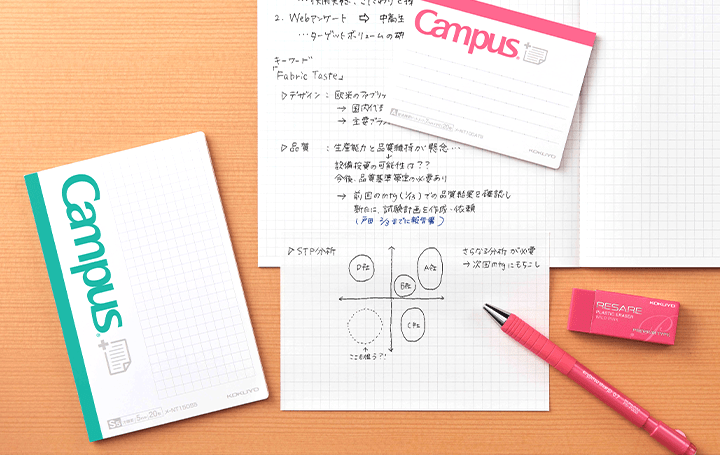 2. Webアンケート ⇨ 中高生
…ターゲットボリュームの
キーワード
「Fabric Taste」
▷デザイン : 欧米のファブリッ
→ 国内代
→ 主要ブラ
▷品質 : 生産能力と品質維持が懸念…
設備投資の可能性は??
今後、品質基準策定の必要あり
→ 前回のmtg(1/18)での品質結果を確認し
新たに、試験計画を作成・依頼
(戸田 3/3までに報告書)
▷STP分析
さらなる分析が必要
→次回mtgにもちこし
D社
A社
B社
C社
ここを狙う?!
Campus
A
KOKUYO
Campus
S5
5mm
20
KOKUYO
KOKUYO
RESARE
PLASTIC ERASER
PREMIUM TYPE